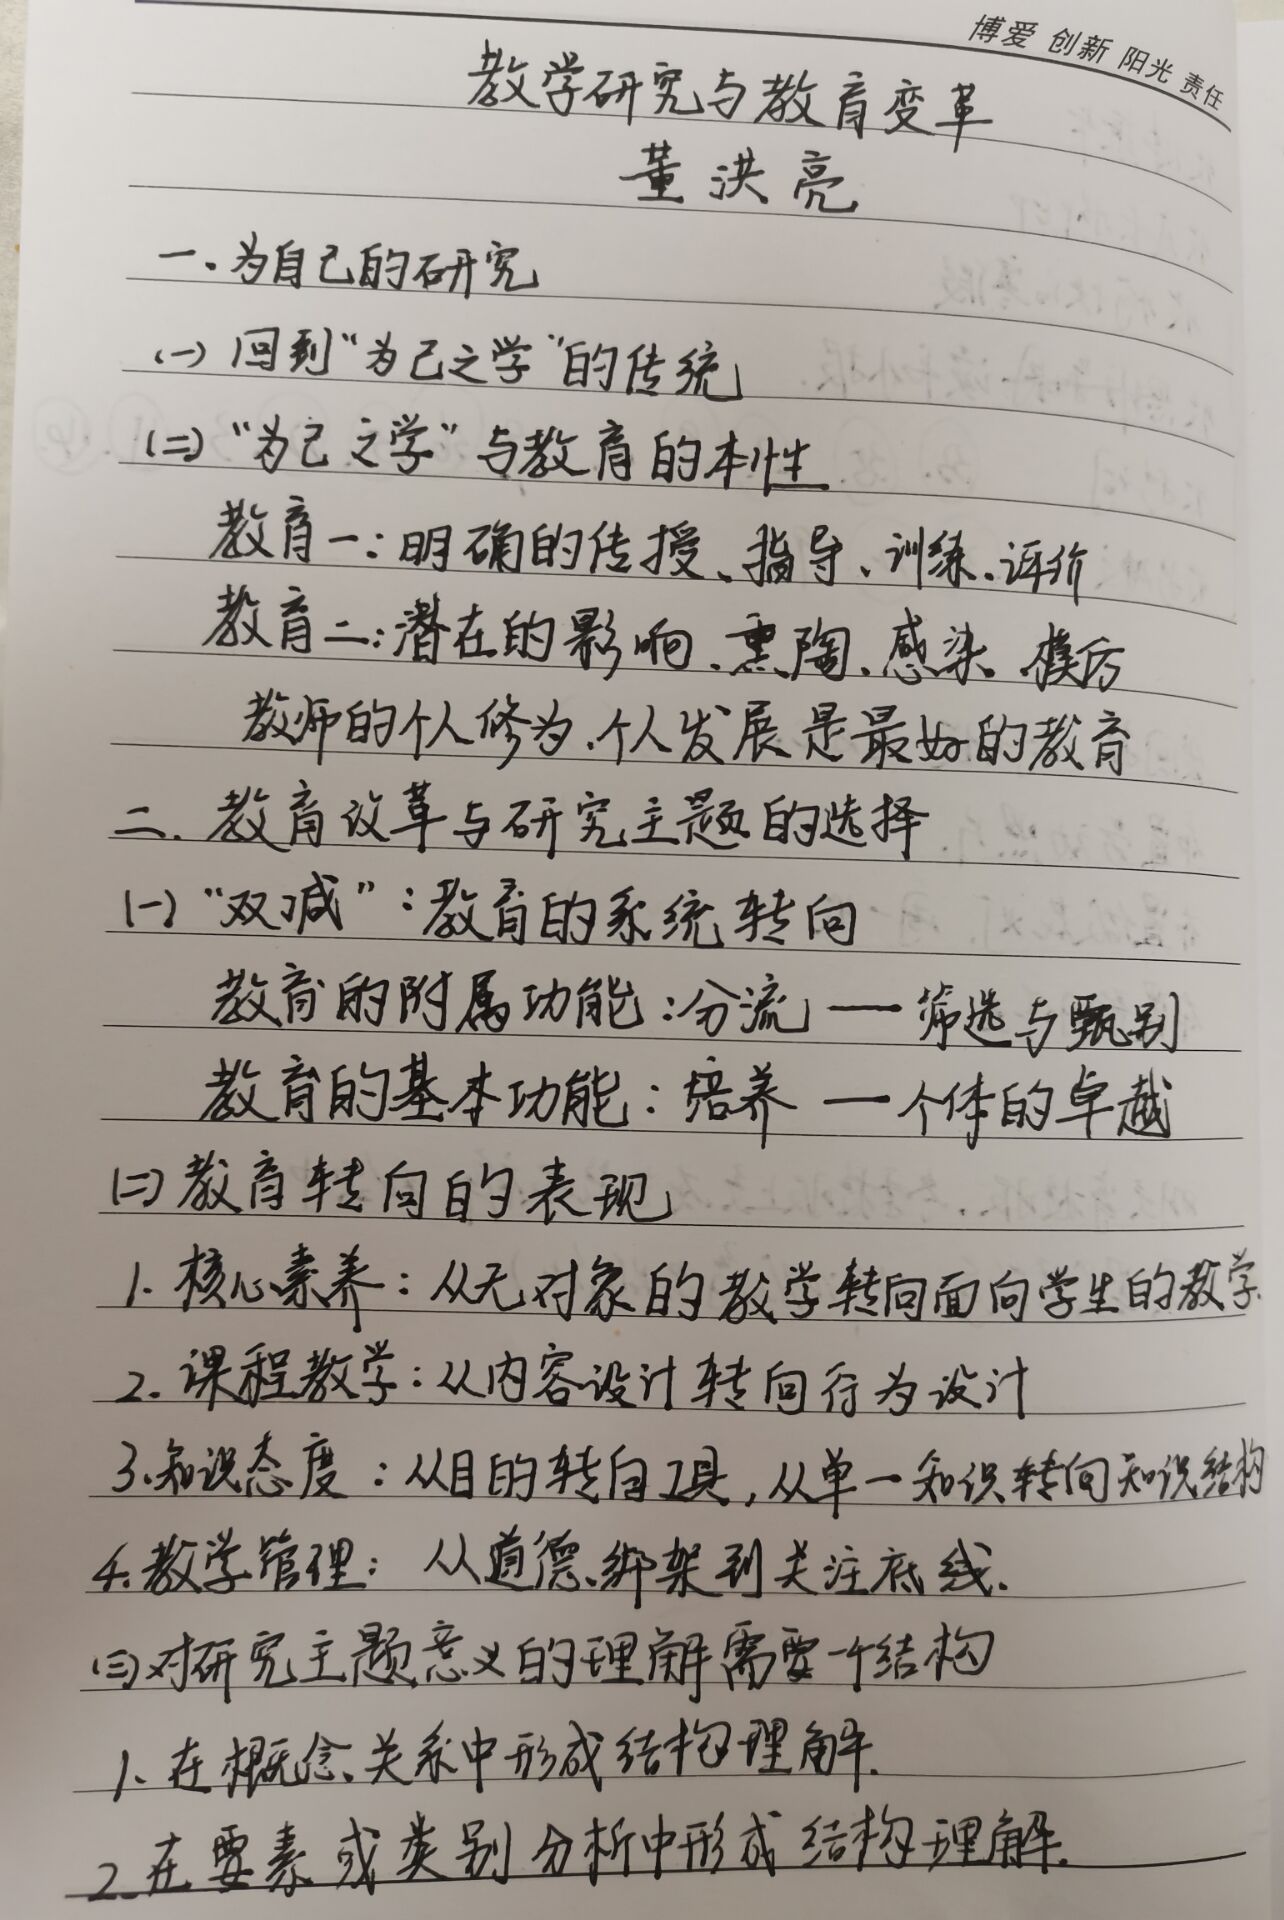 博爱 创新 阳光 责任
教学研究与教育变革
董洪亮
一.为自己的研究
(一)回到“为己之学”的传统
(二)“为己之学”与教育的本性
教育一:明确的传授、指导、训练、评价
教育二:潜在的影响、熏陶、感染、模仿
教师的个人修为、个人发展是最好的教育
二.教育改革与研究主题的选择
(一)“双减”:教育的系统转向
教育的附属功能:分流——筛选与甄别
教育的基本功能:培养——个体的卓越
(二)教育转向的表现
1.核心素养:从无对象的教学转向面向学生的教学.
2.课程教学:从内容设计转向行为设计
3.知识态度:从目的转向工具,从单一知识转向知识结构
4.教学管理:从道德绑架到关注底线.
(三)对研究主题意义的理解需要一个结构
1.在概念关系中形成结构理解.
2.在要素或类别分析中形成结构理解.